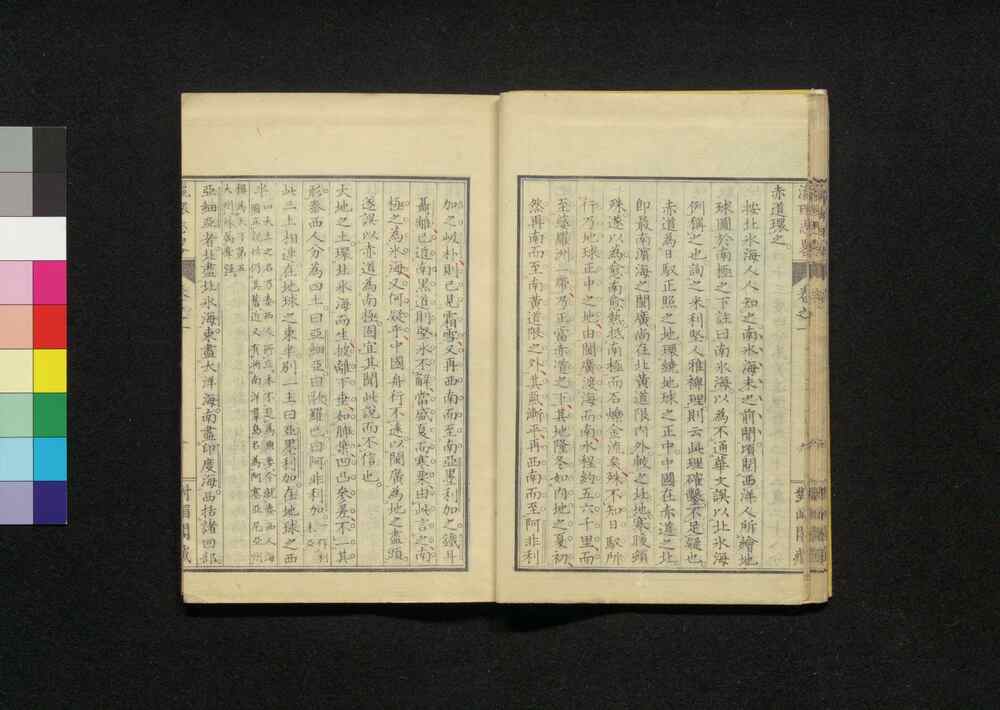 赤道環之
按北冰海人人知之南冰海未之前聞頃閱西洋人所繪地
球圖於南極之下註曰南冰海以為不通華文誤以北冰海
例稱之也詢之米利堅人雅裨理則云此理確鑿不足疑也
赤道為日馭正照之地環繞地球之正中中國在赤道之北
即最南濱海之閩廣尚在北黃道限內外較之北地寒暖頓
殊遂以為愈南愈熱抵南極而石爍金流矣殊不知日馭所
行乃地球正中之地由閩廣渡海而南水程約五六千里而
至婆羅洲一帶乃正當赤道之下其地隆冬如內地之夏初
然再南而至南黃道限之外其氣漸平再西南而至阿非利
加之岐朴則已見霜雪又再西南而至南亞墨利加之鐵耳
聶離已近南黑道則堅冰不解當盛夏而寒栗由此言之南
極之為冰海又何疑乎中國舟行不遠以閩廣為地之盡頭
遂誤以赤道為南極固宜其聞此說而不信也
大地之土環北冰海而生披離下垂如肺葉凹凸參差不一其
形泰西人分為四土曰亞細亞曰歐羅巴曰阿非利加
此三土相連在地球之東半別一土曰亞墨利加在地球之西
亞細亞者北盡北冰海東盡大洋海南盡印度海西括諸回部
卷之一